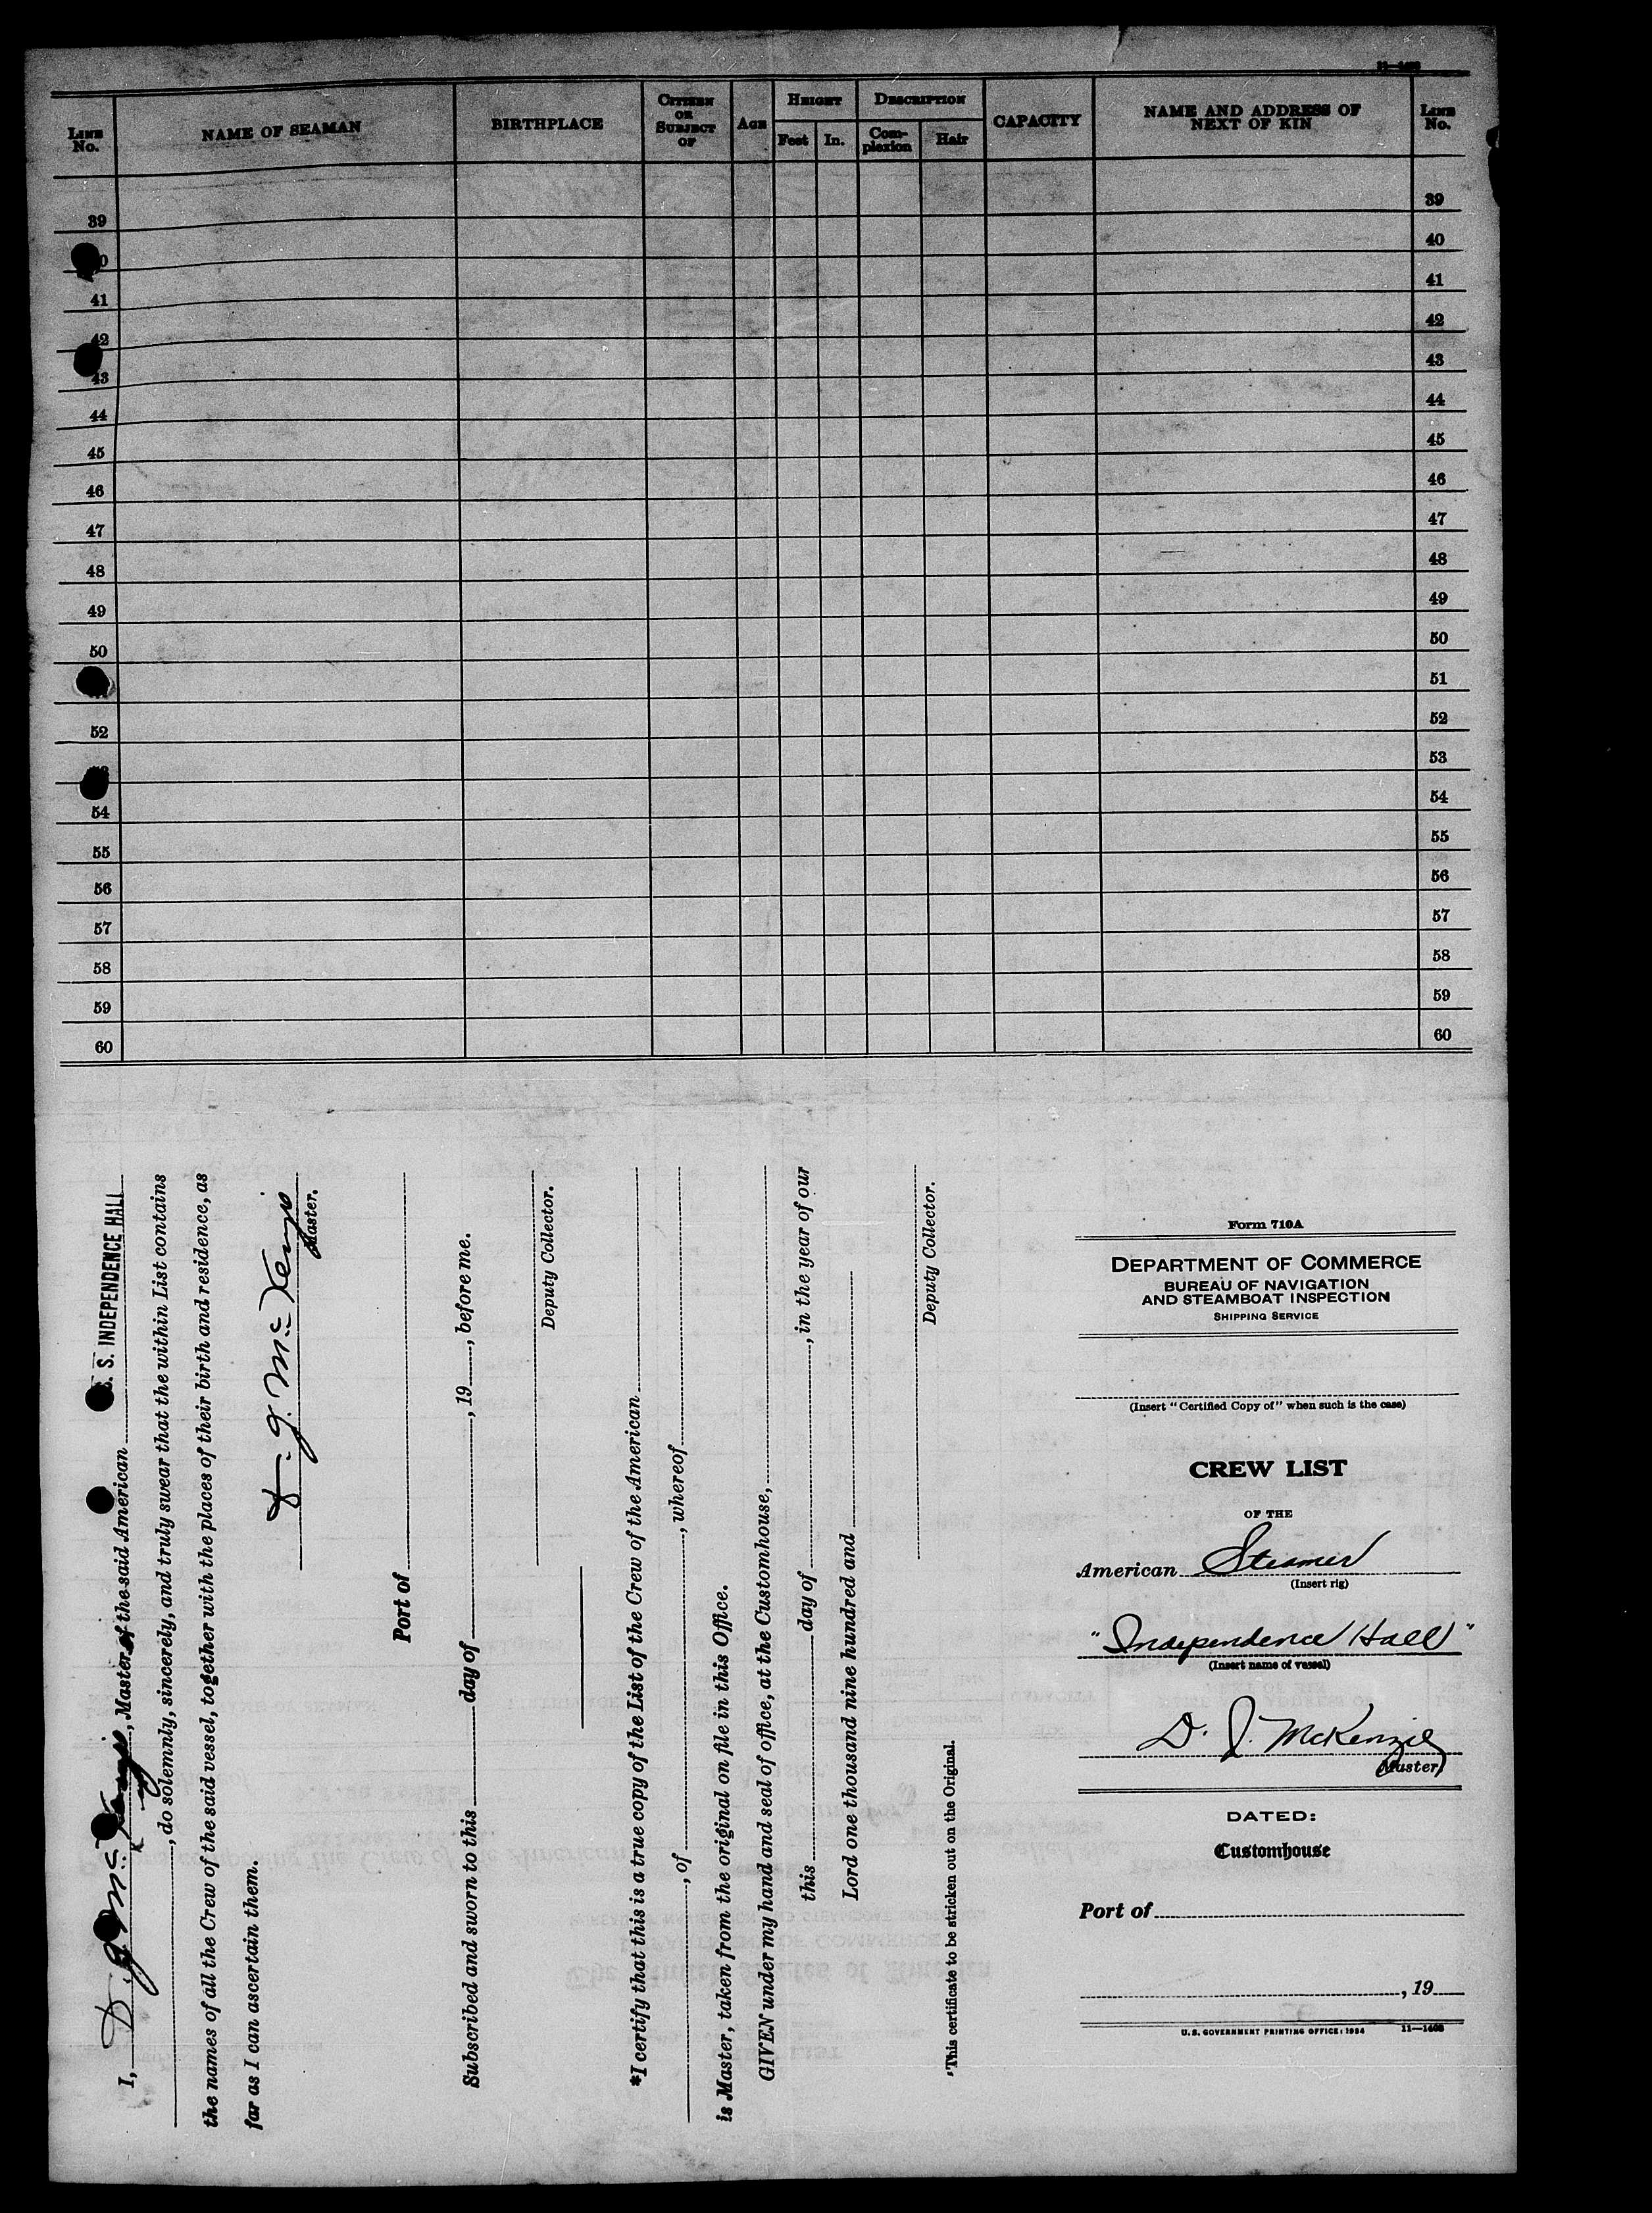 11—1408
LINE No. NAME OF SEAMAN BIRTHPLACE CITIZEN OR SUBJECT OF AGE HEIGHT Feet In. DESCRIPTION Complexion Hair CAPACITY NAME AND ADDRESS OF NEXT OF KIN LINE No.
39 39
40 40
41 41
42 42
43 43
44 44
45 45
46 46
47 47
48 48
49 49
50 50
51
52 52
53 53
54 54
55 55
56 56
57 57
58 58
59 59
60 60
I, D. J. McKenzie, Master of the said American S. S. INDEPENDENCE HALL
, do solemnly, sincerely, and truly swear that the within List contains
the names of all the Crew of the said vessel, together with the places of their birth and residence, as
far as I can ascertain them.
D. J. McKenzie
Master.
Port of
Subscribed and sworn to this day of , 19 , before me.
Deputy Collector.
*I certify that this is a true copy of the List of the Crew of the American
, of , whereof
is Master, taken from the original on file in this Office.
GIVEN under my hand and seal of office, at the Customhouse,
this day of , in the year of our
Lord one thousand nine hundred and
Deputy Collector.
*This certificate to be stricken out on the Original.
Form 710A
DEPARTMENT OF COMMERCE
BUREAU OF NAVIGATION
AND STEAMBOAT INSPECTION
SHIPPING SERVICE
(Insert "Certified Copy of" when such is the case)
CREW LIST
OF THE
American Steamer
(Insert rig)
"Independence Hall"
(Insert name of vessel)
D. J. McKenzie
Master
DATED:
Customhouse
Port of
, 19
U.S. GOVERNMENT PRINTING OFFICE: 1934 11—1408